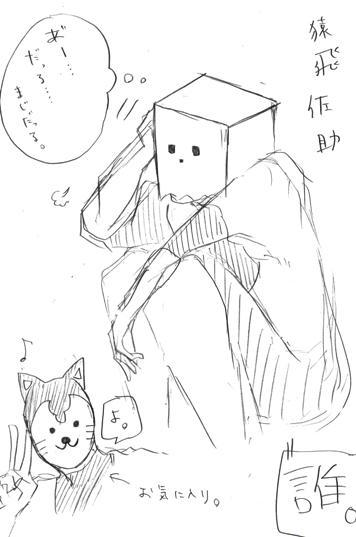 猿飛佐助
あ゙ー…
だっる…
まじだる。
よ。
お気に入り。
誰。